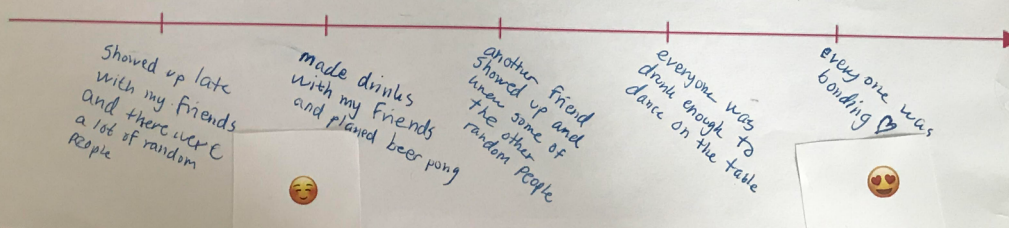 showed up late
with my friends
and there were
a lot of random
people
made drinks
with my friends
and played beer pong
another friend
showed up and
knew some of
the other
random people
everyone was
drunk enough to
dance on the table
everyone was
bonding ♡